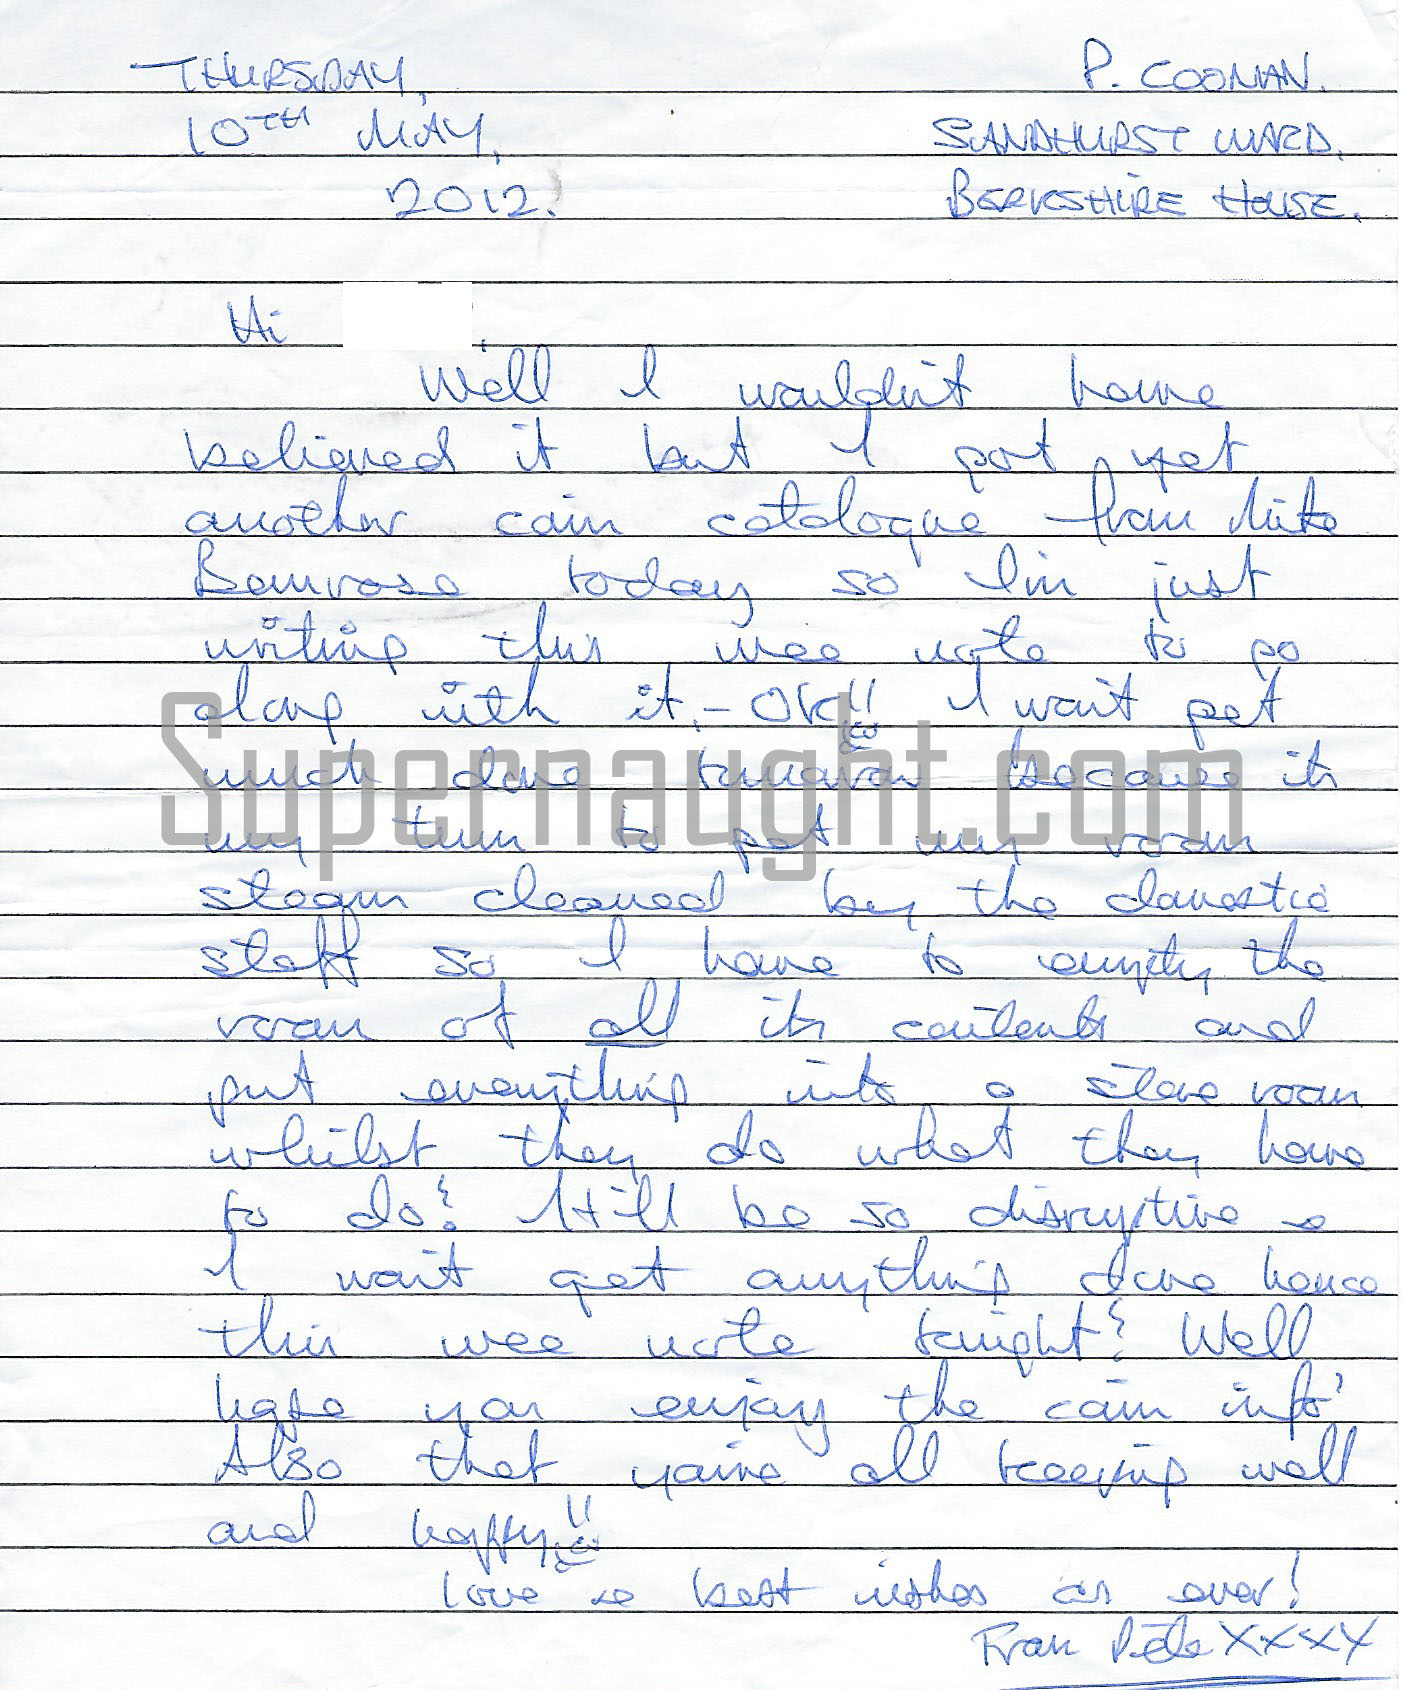 THURSDAY, P. COONAN.
10TH MAY, SANDHURST WARD.
2012. BERKSHIRE HOUSE.
Hi ,
Well I wouldn't have
believed it but I got yet
another coin catalogue from Mike
Bamrose today so I'm just
writing this wee note to go
along with it, - OK!!
I won't get
Supernaught.com
much done tomorrow because it's
my turn to get my room
steam cleaned by the domestic
staff so I have to empty the
room of all its contents and
put everything into a store room
whilst they do what they have
to do! It'll be so disruptive &
I won't get anything done hence
this wee note tonight! Well
hope you enjoy the coin info'
Also that you're all keeping well
and happy!!
Love & best wishes as ever!
From Pete XXXX